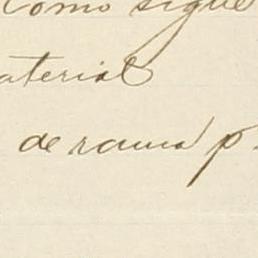 Como sigue
aterial
de rama p.